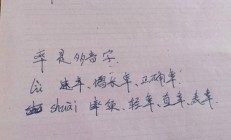 率是多音字
lǜ 速率、增长率、正确率
shuài 率领、轻率、直率、表率